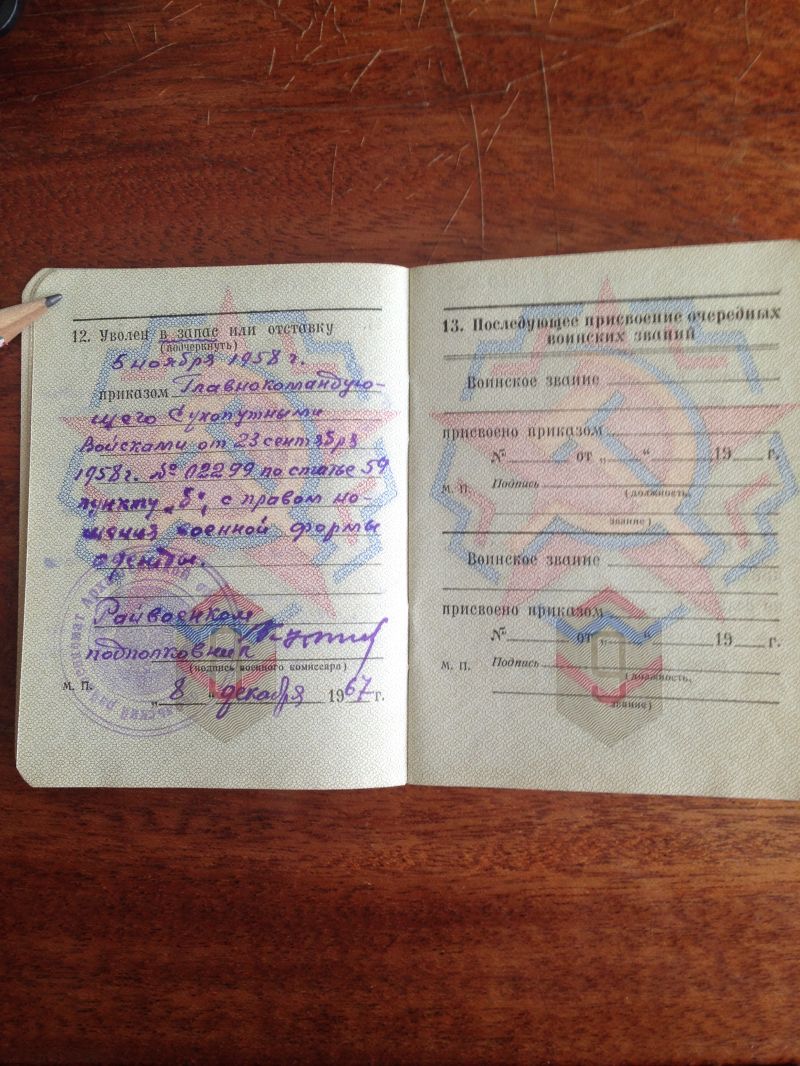 12. Уволен в запас или отставку
(подчеркнуть)
5 ноября 1958 г.
приказом Главнокомандую-
щего Сухопутными
Войсками от 23 сентября
1958 г. № 02299 по статье 59
пункту „б", с правом но-
шения военной формы
одежды.
Райвоенком
подполковник
(подпись военного комиссара)
М. П.
„ 8 " декабря 1967 г.
13. Последующее присвоение очередных
воинских званий
Воинское звание
присвоено приказом
№ от „ " 19 г.
М. П. Подпись
(должность,
звание)
Воинское звание
присвоено приказом
№ от „ " 19 г.
М. П. Подпись
(должность,
звание)